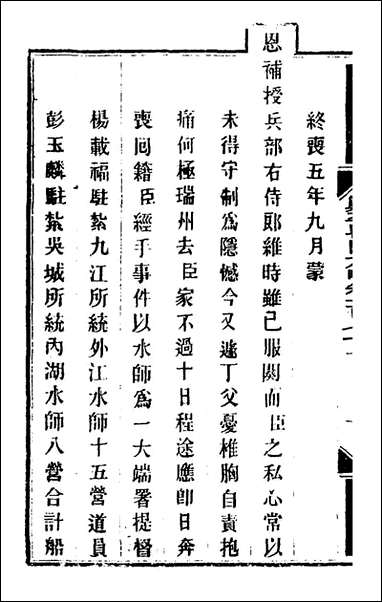 終喪五年九月蒙
恩補授兵部右侍郎維時雖已服闋而臣之私心常以
未得守制為隱憾今又遽丁父憂椎胸自責抱
痛何極瑞州去臣家不過十日程途應即日奔
喪囘籍臣經手事件以水師為一大端署提督
楊載福駐紮九江所統外江水師十五營道員
彭玉麟駐紮吳城所統內湖水師八營合計船